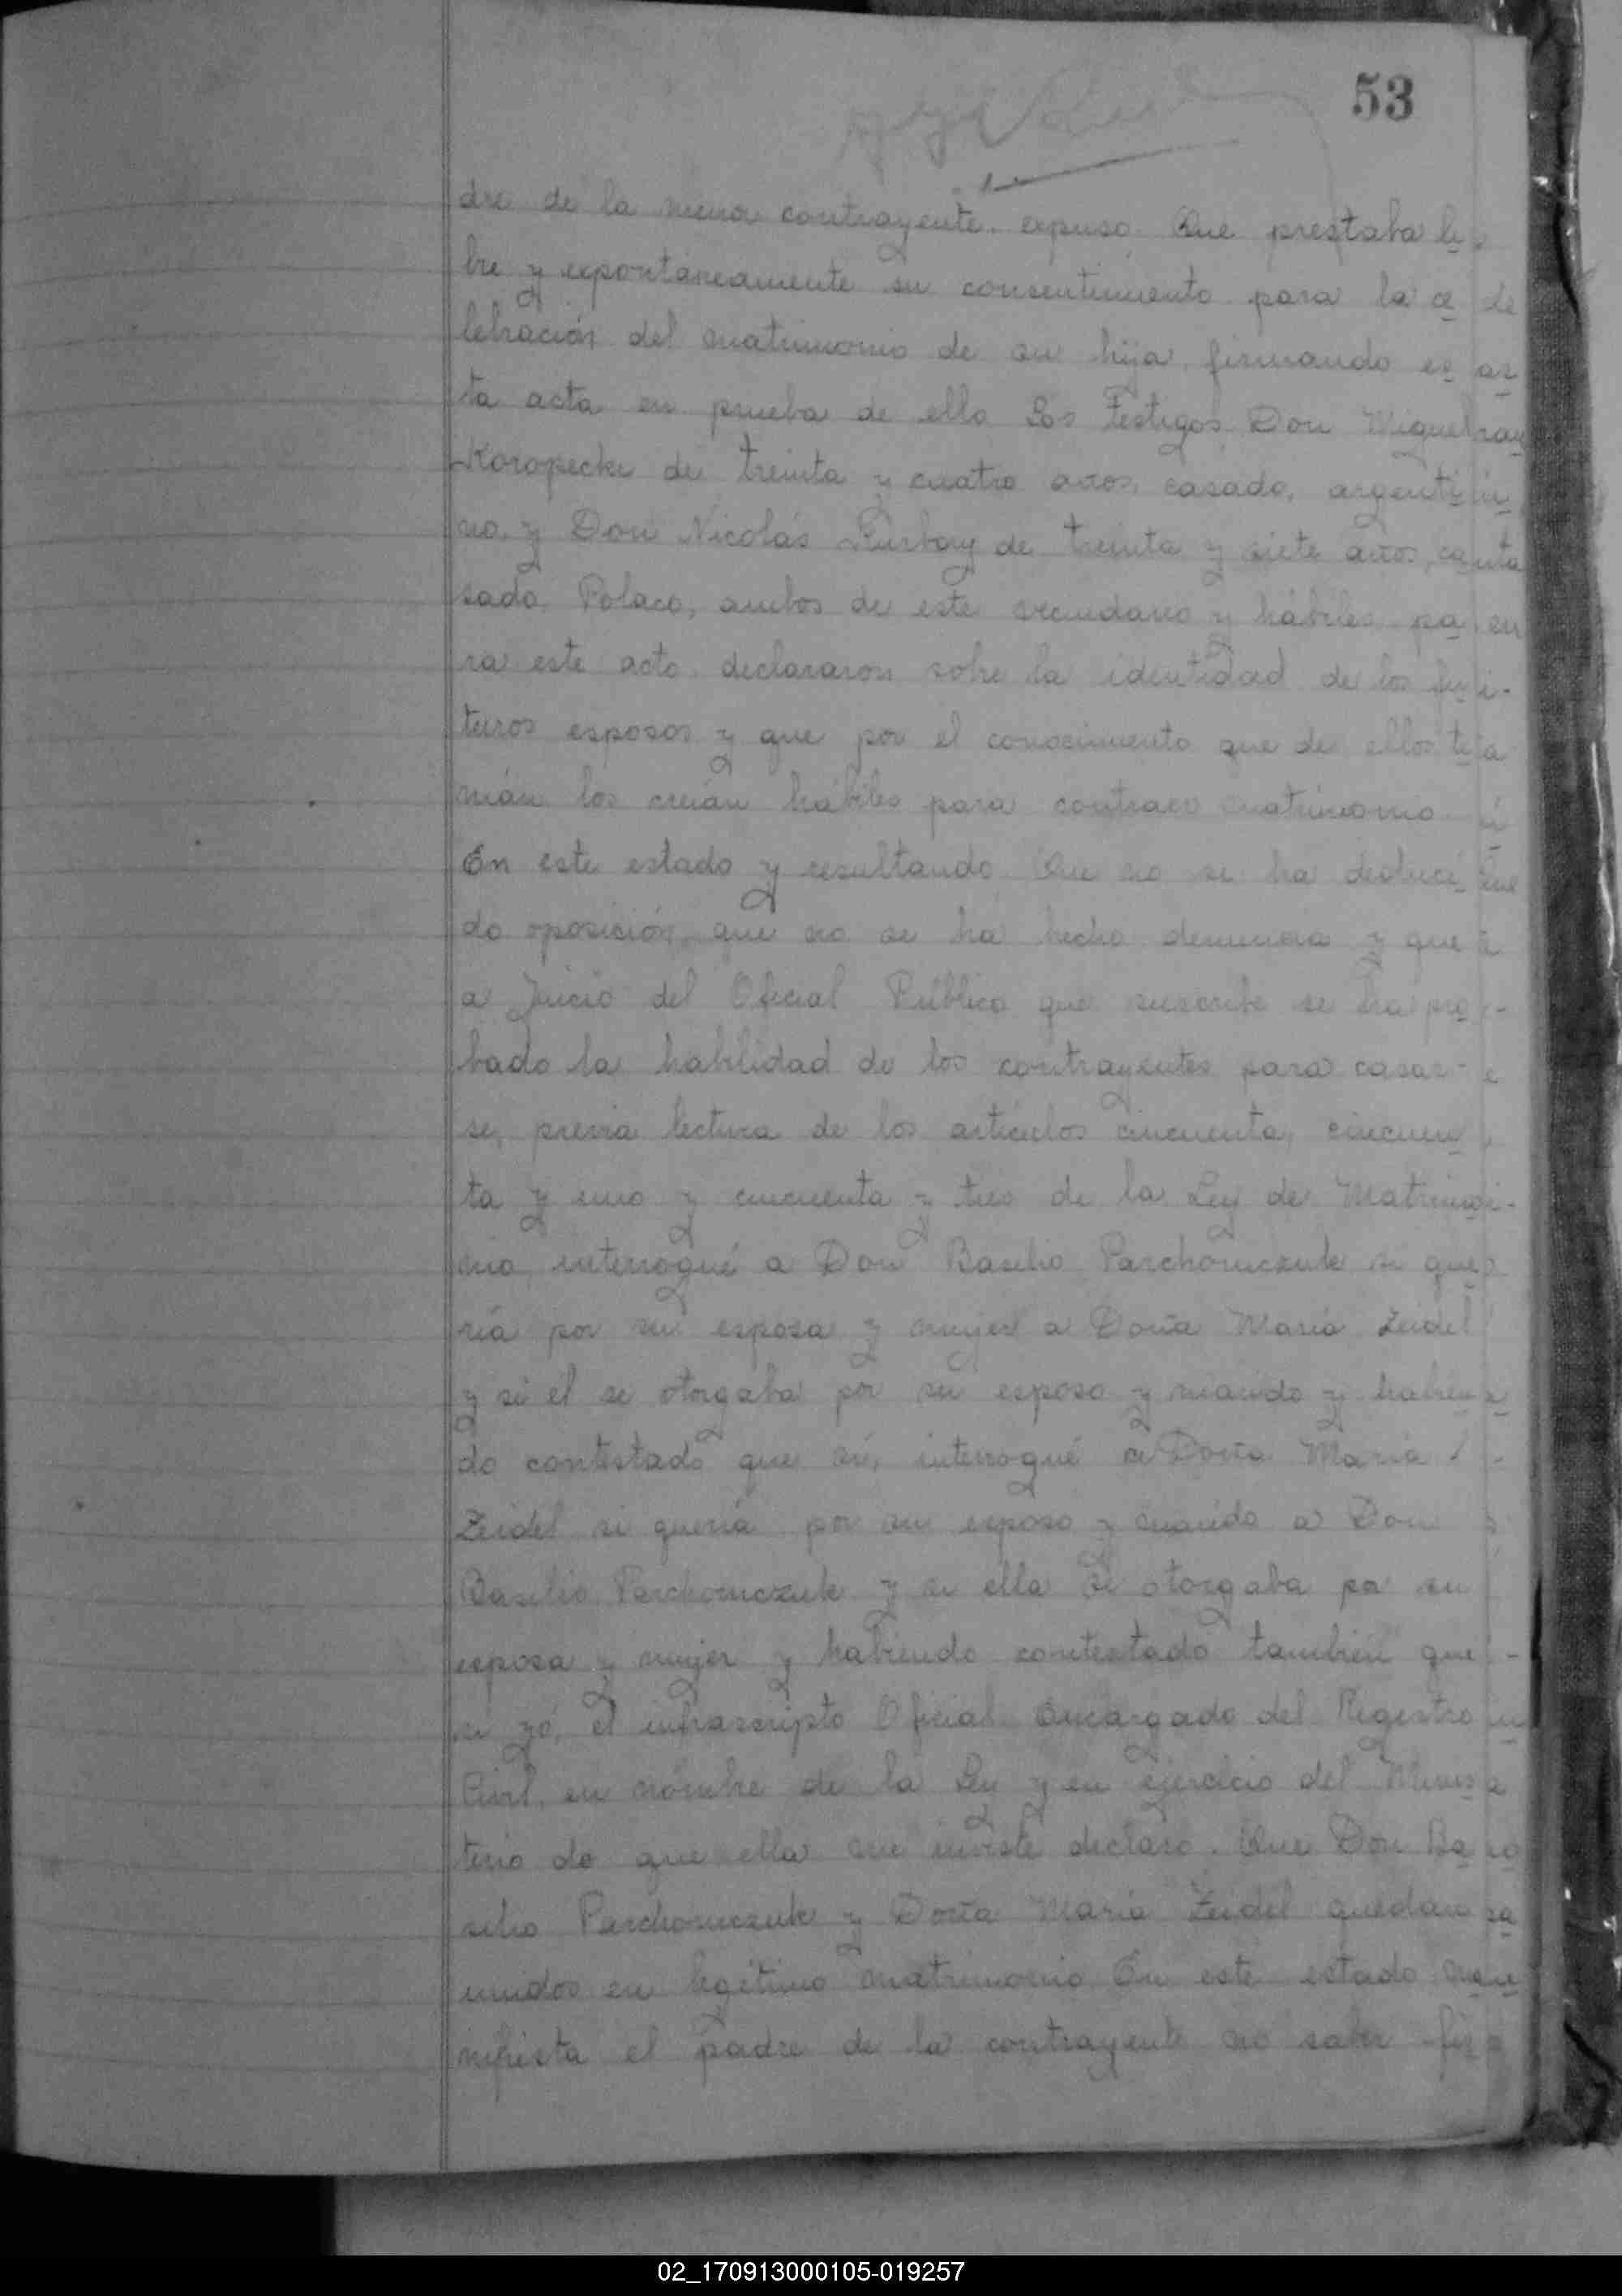 53
dre de la menor contrayente. expuso. Que prestaba li
bre y expontáneamente su consentimiento para la ce
lebración del matrimonio de su hija, firmando es
ta acta en prueba de ello Los Testigos Don Miguel
Koropecki de treinta y cuatro años, casado, argenti
no, y Don Nicolás de treinta y siete años, ca
sado, Polaco, ambos de este vecindario y hábiles pa
ra este acto declararon sobre la identidad de los fu
turos esposos y que por el conocimiento que de ellos te
nián los creián hábiles para contraer matrimonio
En este estado y resultando Que no se ha deduci
do oposición, que no se ha hecho denuncia y que
a Juicio del Oficial Público que suscribe se ha pro
bado la habilidad de los contrayentes para casar-
se, previa lectura de los articulos cincuenta, cincuen
ta y uno y cincuenta y tres de la Ley de Matrimo
nio, interrogué a Don Basilio Parchomczuk si que
ría por su esposa y mujer a Doña María Zeidel
y si él se otorgaba por su esposo y marido y habien
do contestado que sí, interrogué a Doña María
Zeidel si quería por su esposo y marido a Don
Basilio Parchomczuk y si ella se otorgaba por su
esposa y mujer y habiendo contestado también que
si yó, el infrascripto Oficial Encargado del Registro
Civil, en nombre de la Ley y en ejercicio del Minis
terio de que ella me inviste declaro. Que Don Ba
silio Parchomczuk y Doña María Zeidel quedan
unidos en legítimo matrimonio En este estado ma
nifiesta el padre de la contrayente no saber fir
02_170913000105-019257